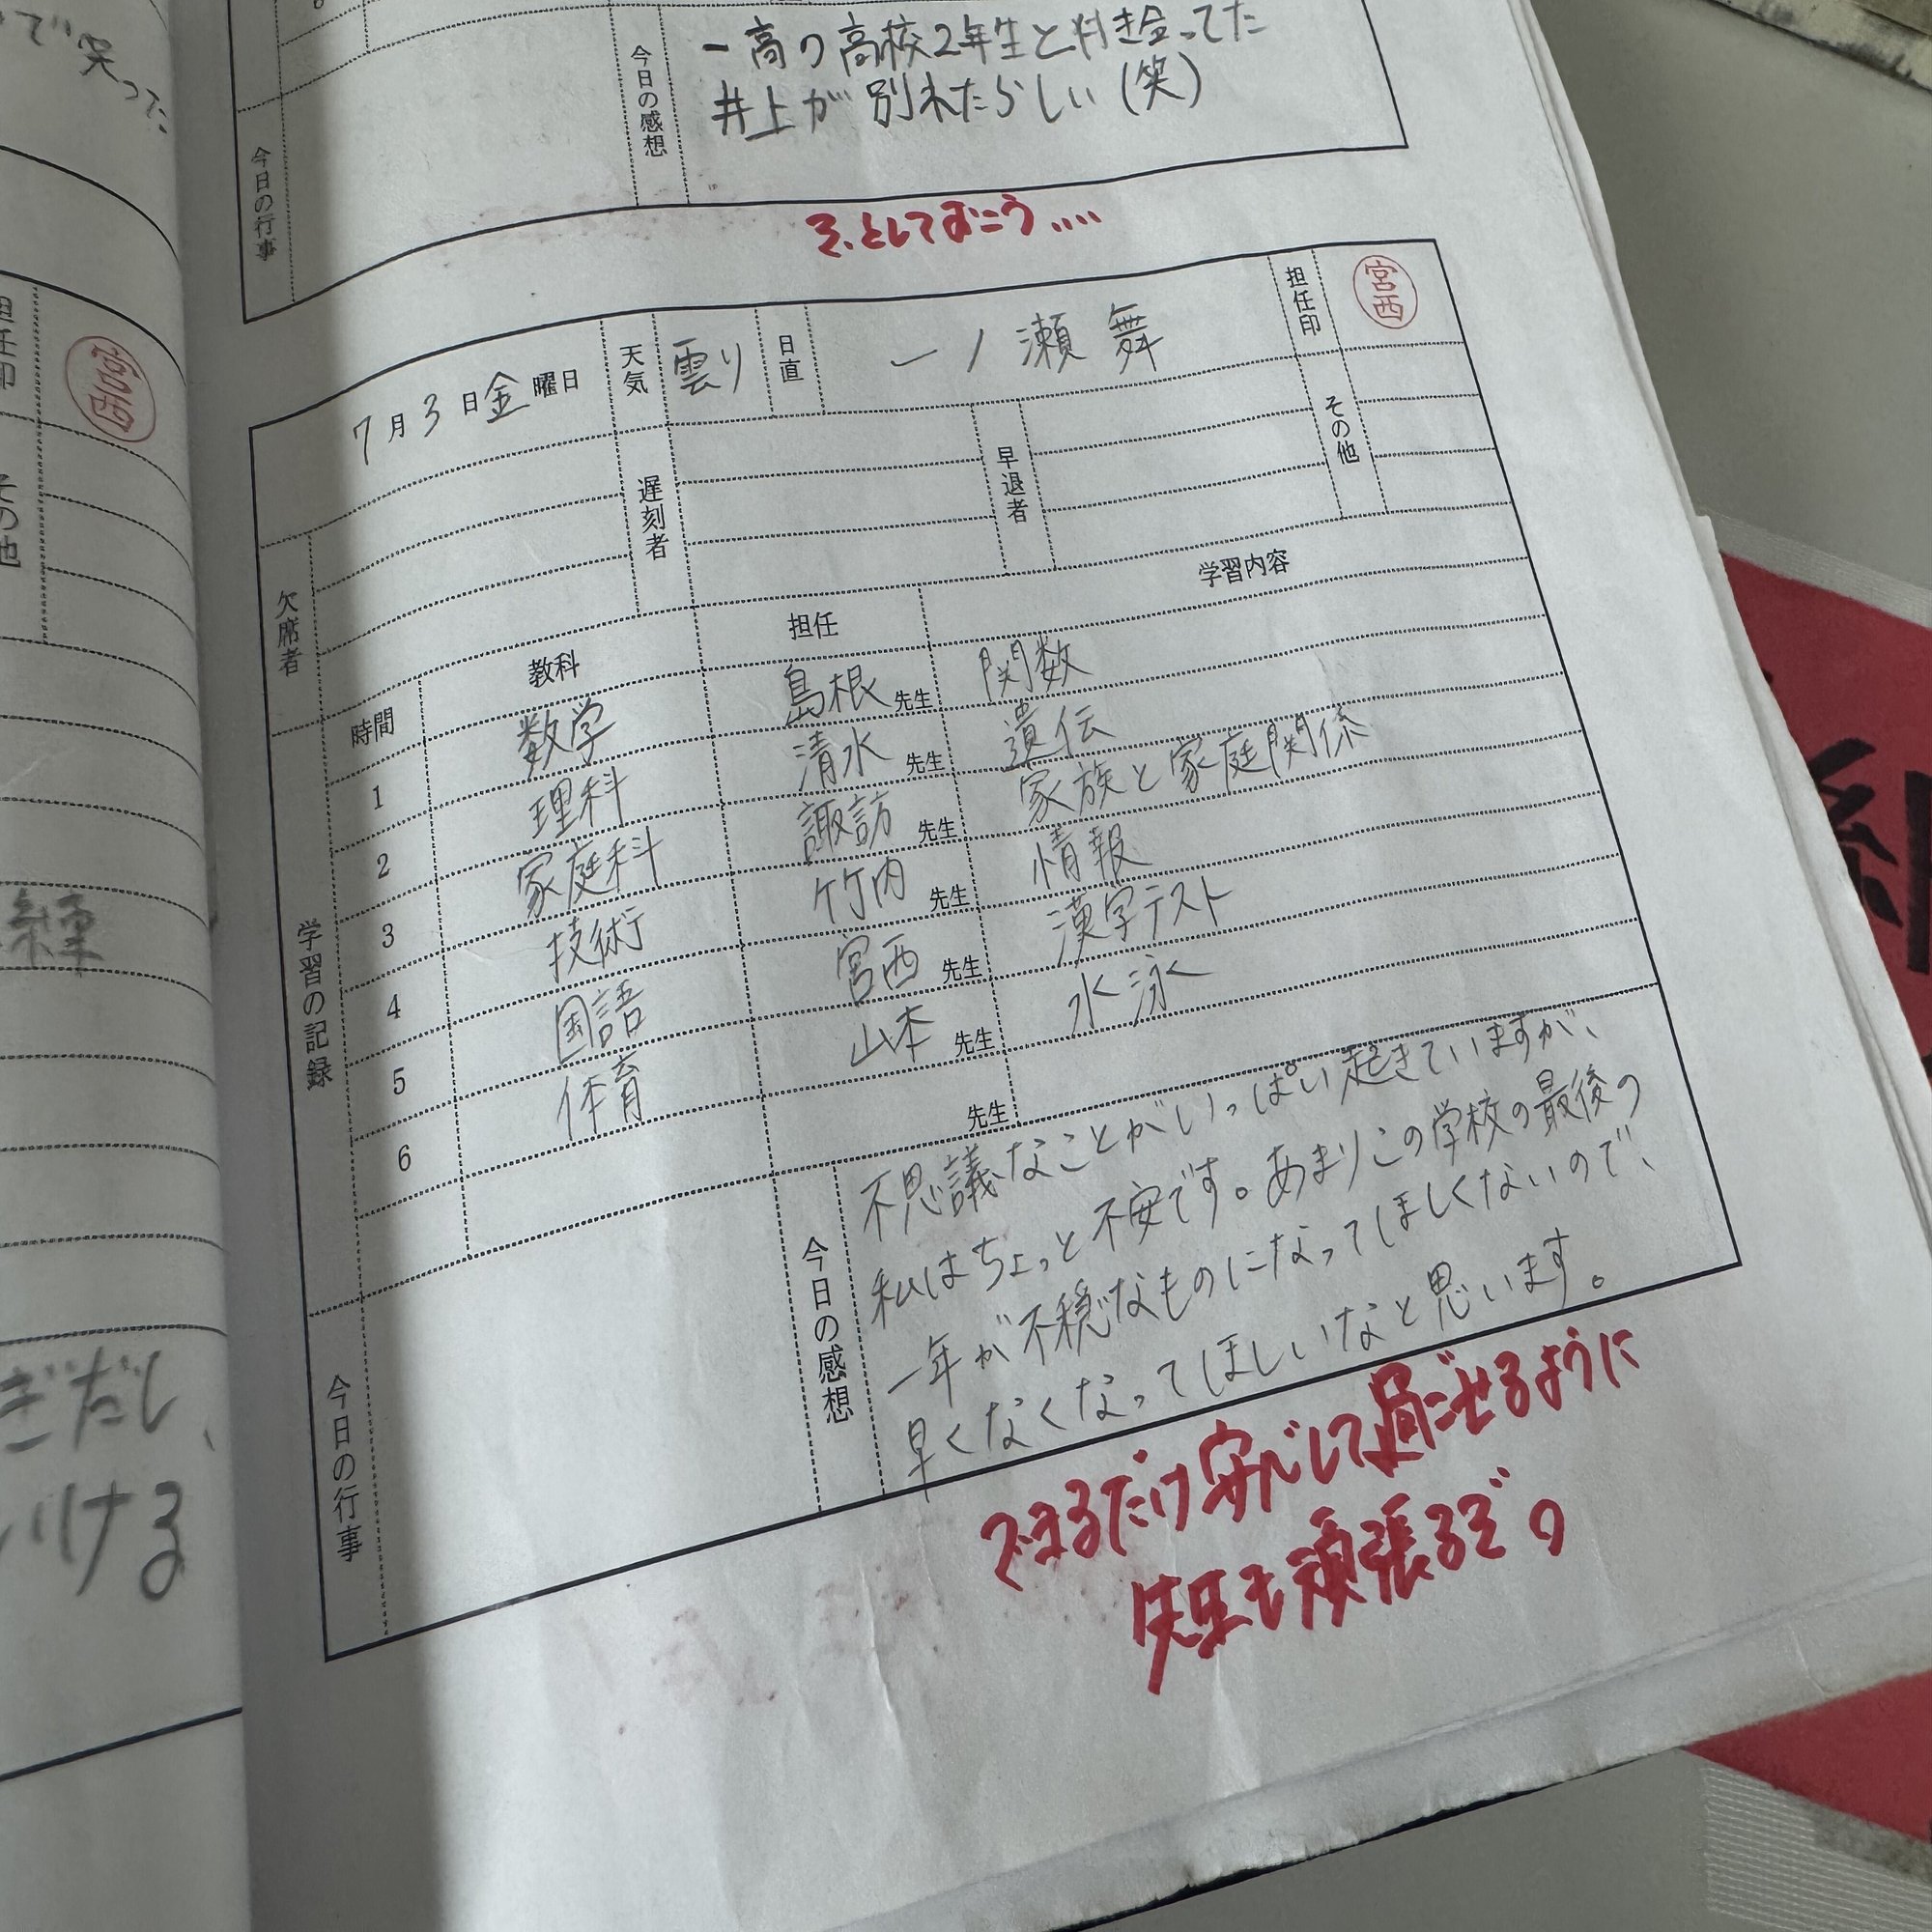 で笑った
担任印
宮西
その他
ぎだし、
いける
一高の高校2年生と付き合ってた
井上が別れたらしい(笑)
今日の感想
今日の行事
そっとしておこう....
7月3日金曜日
天気
雲り
日直
一ノ瀬 舞
担任印
宮西
欠席者
遅刻者
早退者
その他
学習の記録
時間 教科 担任 学習内容
1 数学 島根先生 関数
2 理科 清水先生 遺伝
3 家庭科 諏訪先生 家族と家庭関係
4 技術 竹内先生 情報
5 国語 宮西先生 漢字テスト
6 体育 山本先生 水泳
先生
今日の行事
今日の感想
不思議なことがいっぱい起きていますが、
私はちょっと不安です。あまりこの学校の最後の
一年が不穏なものになってほしくないので、
早くなくなってほしいなと思います。
できるだけ安心して過ごせるように
先生も頑張るぞ